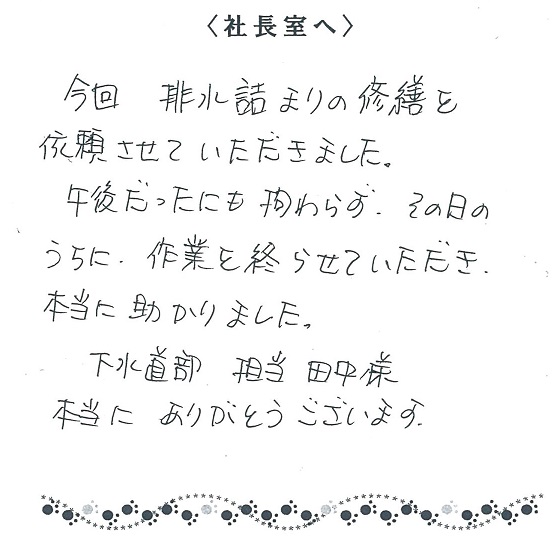 〈社長室へ〉
今回 排水詰まりの修繕を
依頼させていただきました。
午後だったにも拘わらず、その日の
うちに、作業を終らせていただき、
本当に助かりました。
下水道部 担当 田中様
本当に ありがとうございます。